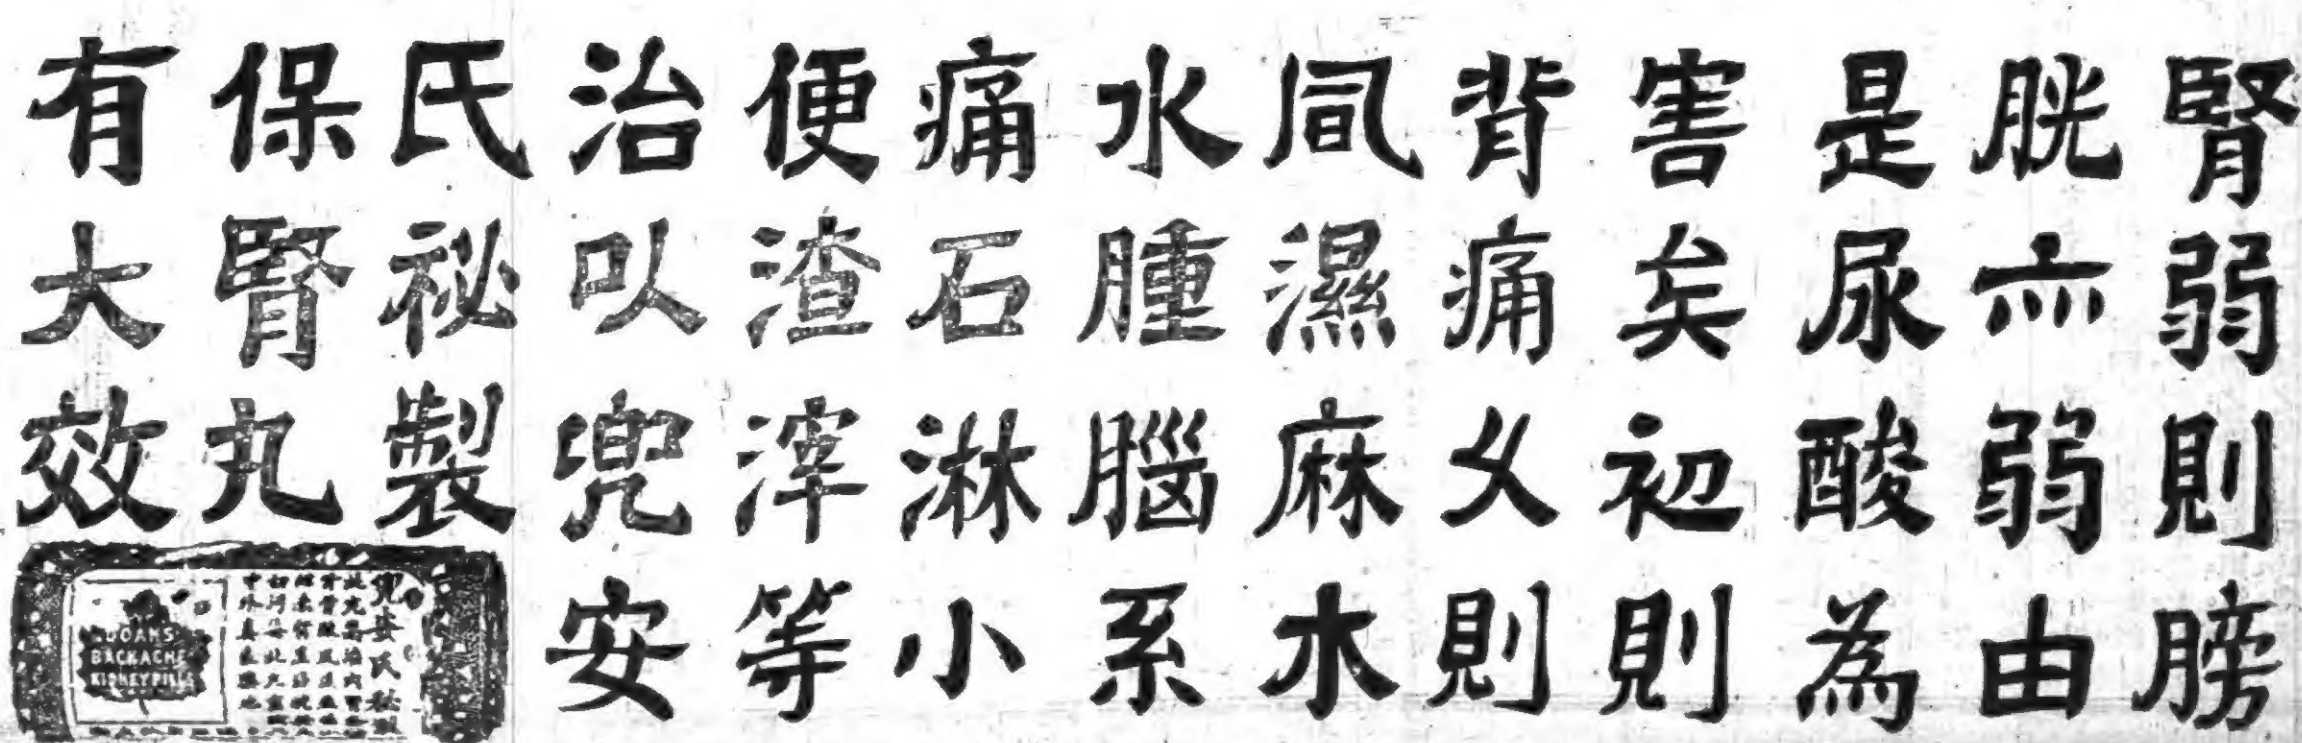 腎弱則膀
胱亦弱由
是尿酸為
害矣初則
背痛久則
風濕麻木
水腫腦系
痛石淋小
便渣滓等
治以兜安
氏祕製
保腎丸
有大效
DOANS
BACKACHE
KIDNEY PILLS
兜安氏秘製